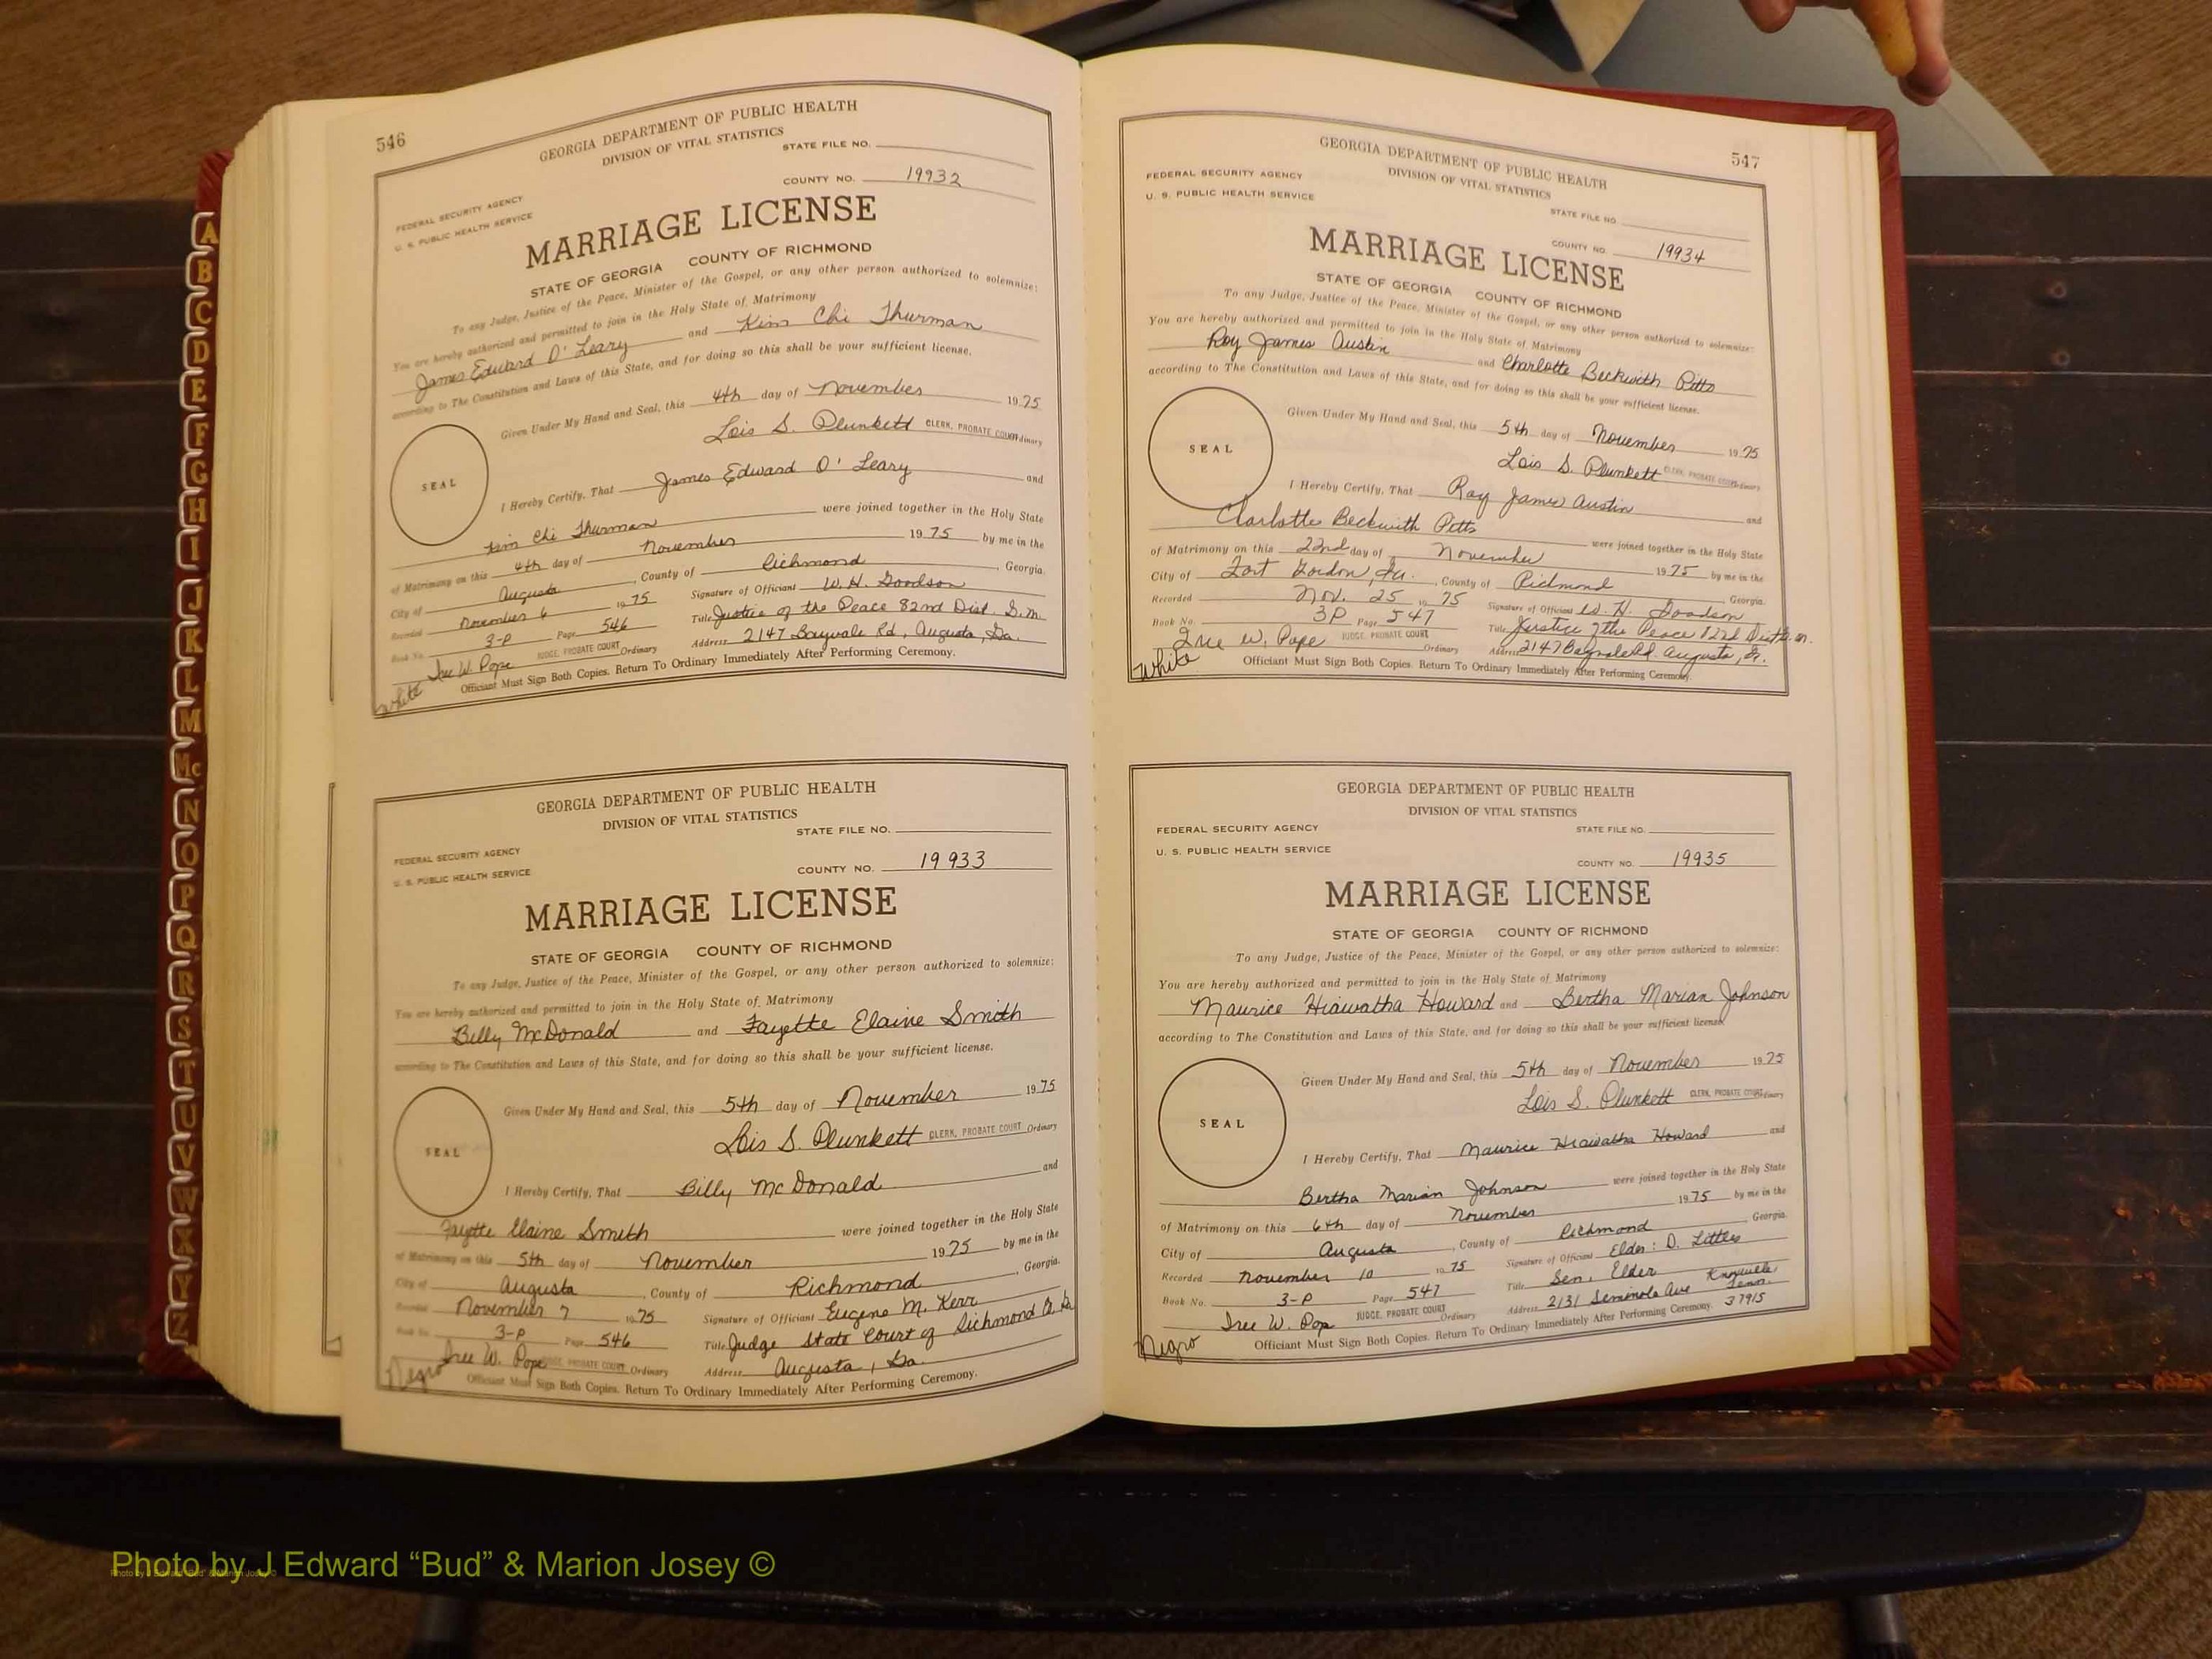 546
GEORGIA DEPARTMENT OF PUBLIC HEALTH
DIVISION OF VITAL STATISTICS
STATE FILE NO.
COUNTY NO. 19932
FEDERAL SECURITY AGENCY
U. S. PUBLIC HEALTH SERVICE
MARRIAGE LICENSE
STATE OF GEORGIA COUNTY OF RICHMOND
To any Judge, Justice of the Peace, Minister of the Gospel, or any other person authorized to solemnize:
You are hereby authorized and permitted to join in the Holy State of Matrimony
James Edward O'Leary and Kim Chi Thurman
according to The Constitution and Laws of this State, and for doing so this shall be your sufficient license.
Given Under My Hand and Seal, this 4th day of November 1975
Lois S. Plunkett CLERK, PROBATE COURT Ordinary
SEAL
I Hereby Certify, That James Edward O'Leary and
Kim Chi Thurman were joined together in the Holy State
of Matrimony on this 4th day of November 1975 by me in the
City of Augusta, County of Richmond, Georgia.
Recorded November 6 1975 Signature of Officiant W. H. Goodson
Book No. 3-P Page 546 Title Justice of the Peace 82nd Dist. G.M.
Tree W. Pope JUDGE, PROBATE COURT Ordinary Address 2147 Bayvale Rd, Augusta, Ga.
White Officiant Must Sign Both Copies. Return To Ordinary Immediately After Performing Ceremony.
GEORGIA DEPARTMENT OF PUBLIC HEALTH
DIVISION OF VITAL STATISTICS
STATE FILE NO.
FEDERAL SECURITY AGENCY
U. S. PUBLIC HEALTH SERVICE
COUNTY NO. 19933
MARRIAGE LICENSE
STATE OF GEORGIA COUNTY OF RICHMOND
To any Judge, Justice of the Peace, Minister of the Gospel, or any other person authorized to solemnize:
You are hereby authorized and permitted to join in the Holy State of Matrimony
Billy McDonald and Fayette Elaine Smith
according to The Constitution and Laws of this State, and for doing so this shall be your sufficient license.
Given Under My Hand and Seal, this 5th day of November 1975
Lois S. Plunkett CLERK, PROBATE COURT Ordinary
SEAL
I Hereby Certify, That Billy McDonald and
Fayette Elaine Smith were joined together in the Holy State
of Matrimony on this 5th day of November 1975 by me in the
City of Augusta, County of Richmond, Georgia.
Recorded November 7 1975 Signature of Officiant Eugene M. Kerr
Book No. 3-P Page 546 Title Judge State Court of Richmond Co. Ga
Tree W. Pope JUDGE, PROBATE COURT Ordinary Address Augusta, Ga.
Negro Officiant Must Sign Both Copies. Return To Ordinary Immediately After Performing Ceremony.
547
GEORGIA DEPARTMENT OF PUBLIC HEALTH
DIVISION OF VITAL STATISTICS
FEDERAL SECURITY AGENCY
U. S. PUBLIC HEALTH SERVICE
STATE FILE NO.
COUNTY NO. 19934
MARRIAGE LICENSE
STATE OF GEORGIA COUNTY OF RICHMOND
To any Judge, Justice of the Peace, Minister of the Gospel, or any other person authorized to solemnize:
You are hereby authorized and permitted to join in the Holy State of Matrimony
Roy James Austin and Charlotte Beckwith Pitts
according to The Constitution and Laws of this State, and for doing so this shall be your sufficient license.
Given Under My Hand and Seal, this 5th day of November 1975
Lois S. Plunkett CLERK, PROBATE COURT Ordinary
SEAL
I Hereby Certify, That Roy James Austin and
Charlotte Beckwith Pitts were joined together in the Holy State
of Matrimony on this 22nd day of November 1975 by me in the
City of Fort Gordon, Ga., County of Richmond Georgia.
Recorded Nov. 25 1975 Signature of Officiant W. H. Goodson
Book No. 3P Page 547 Title Justice of the Peace 82nd Dist G.M.
Tree W. Pope JUDGE, PROBATE COURT Ordinary Address 2147 Bayvale Rd. Augusta, Ga.
White Officiant Must Sign Both Copies. Return To Ordinary Immediately After Performing Ceremony.
GEORGIA DEPARTMENT OF PUBLIC HEALTH
DIVISION OF VITAL STATISTICS
FEDERAL SECURITY AGENCY STATE FILE NO.
U. S. PUBLIC HEALTH SERVICE
COUNTY NO. 19935
MARRIAGE LICENSE
STATE OF GEORGIA COUNTY OF RICHMOND
To any Judge, Justice of the Peace, Minister of the Gospel, or any other person authorized to solemnize:
You are hereby authorized and permitted to join in the Holy State of Matrimony
Maurice Hiawatha Howard and Bertha Marian Johnson
according to The Constitution and Laws of this State, and for doing so this shall be your sufficient license.
Given Under My Hand and Seal, this 5th day of November 1975
Lois S. Plunkett CLERK, PROBATE COURT Ordinary
SEAL
I Hereby Certify, That Maurice Hiawatha Howard and
Bertha Marian Johnson were joined together in the Holy State
of Matrimony on this 6th day of November 1975 by me in the
City of Augusta, County of Richmond Georgia.
Recorded November 10 1975 Signature of Officiant Elder: D. Littles
Book No. 3-P Page 547 Title Sen. Elder Knoxville Tenn.
Tree W. Pope JUDGE, PROBATE COURT Ordinary Address 2131 Seminola Ave 37915
Negro Officiant Must Sign Both Copies. Return To Ordinary Immediately After Performing Ceremony.
A
B
C
D
E
F
G
H
I
J
K
L
M
Mc
N
O
P
Q
R
S
T
U
V
W
X
Y
Z
Photo by J Edward “Bud” & Marion Josey ©
Photo by J Edward “Bud” & Marion Josey ©